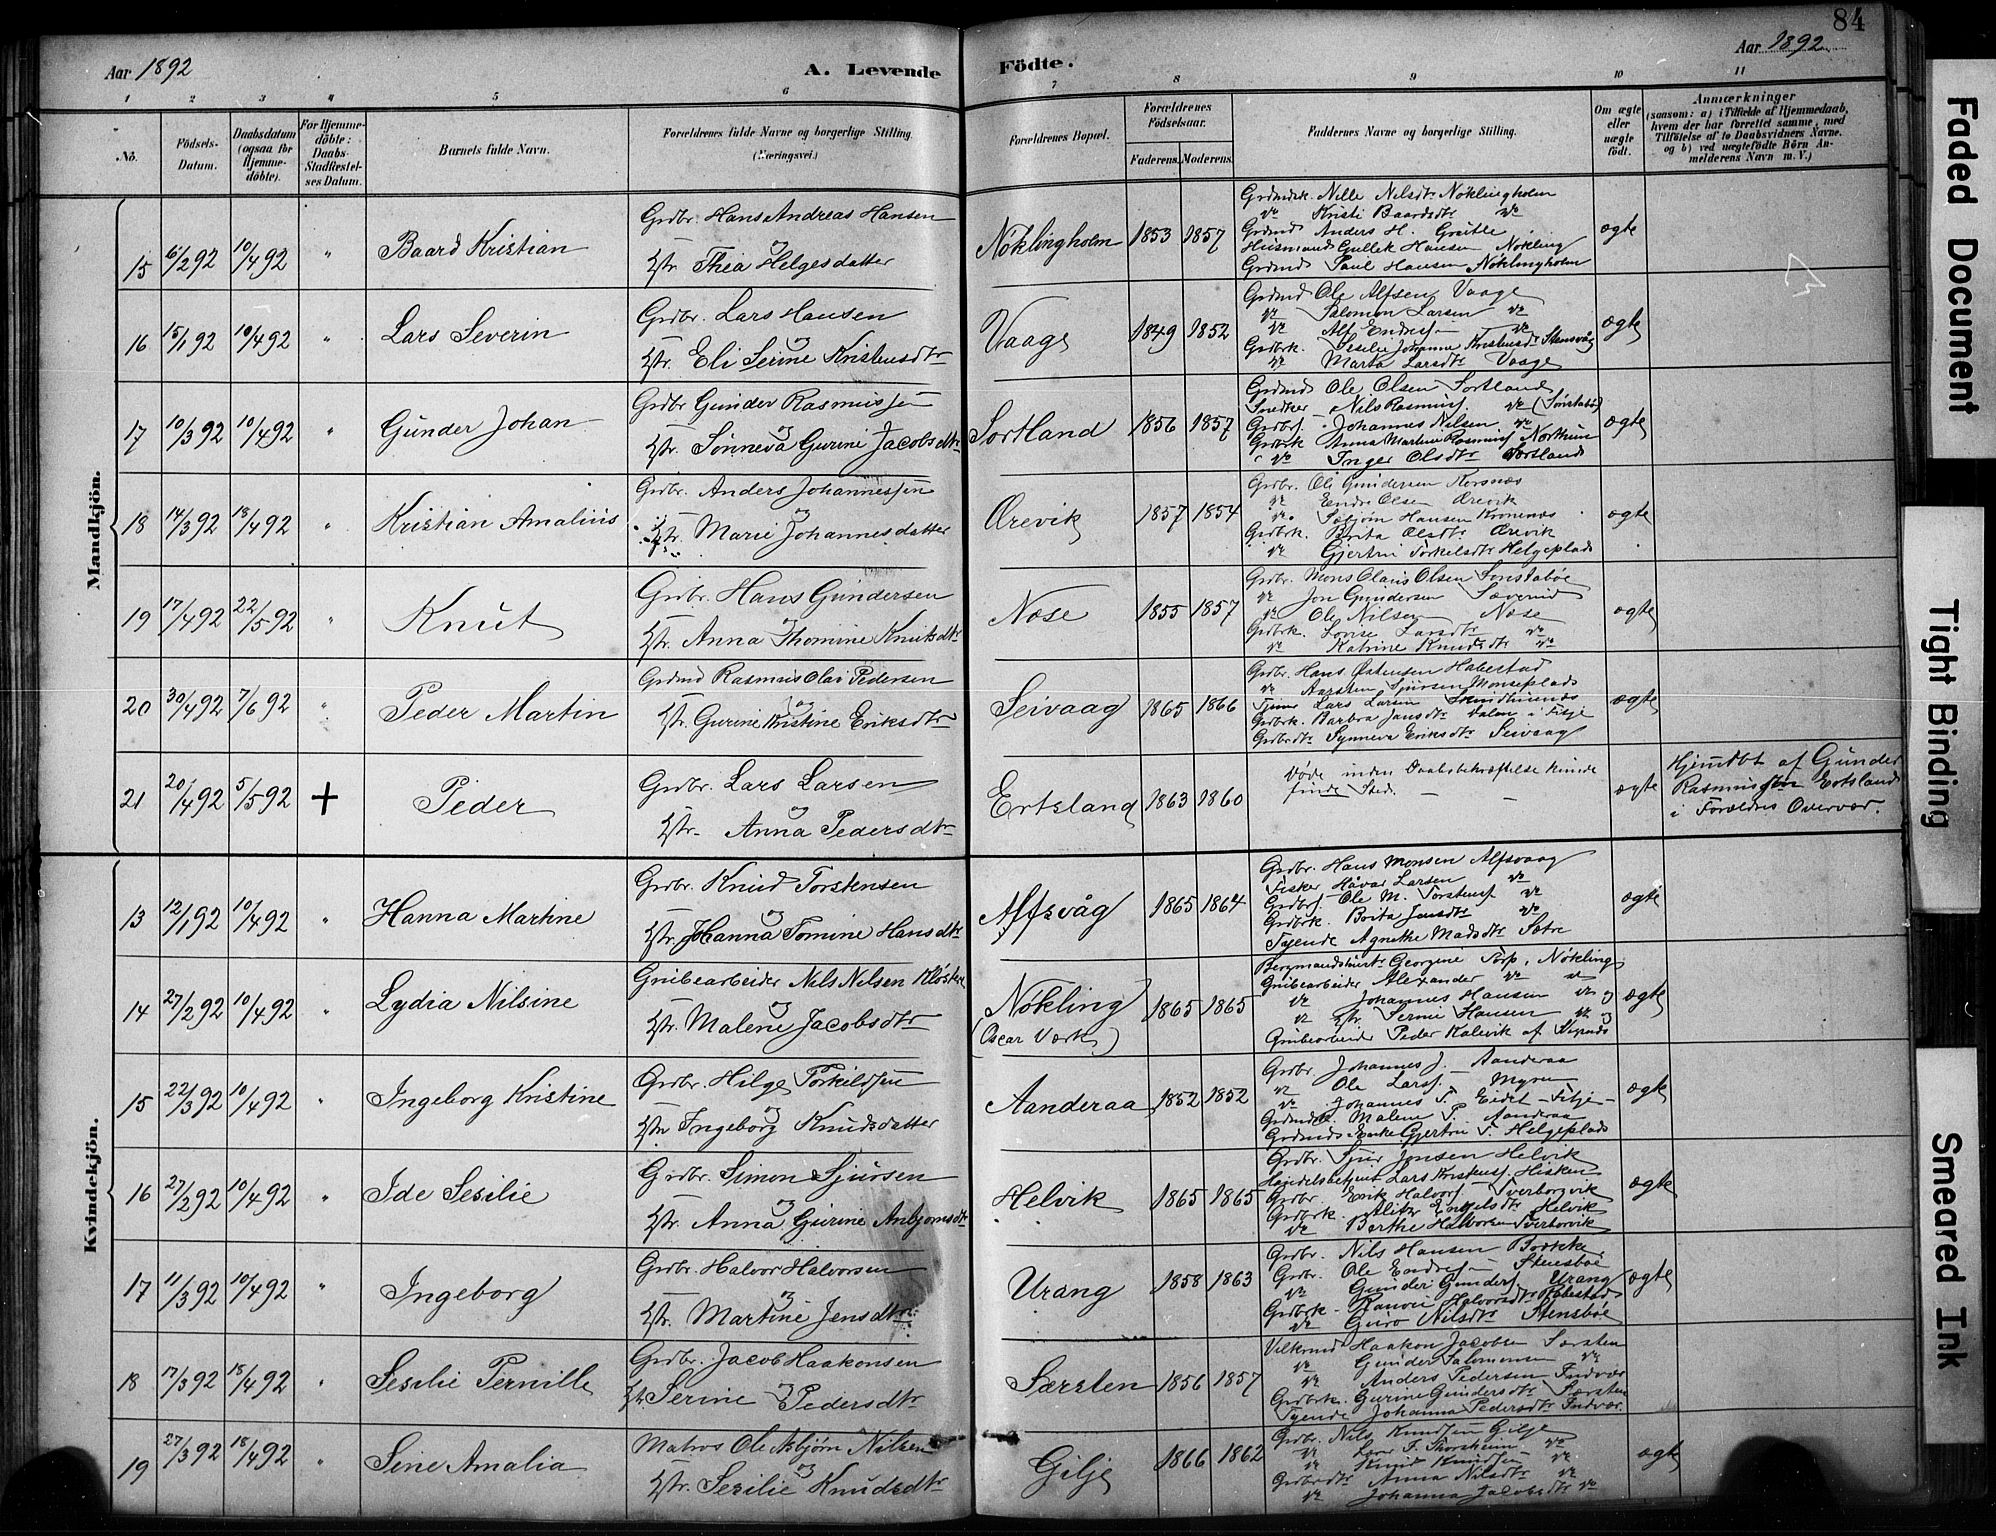 84
Aar 1892
A. Levende Födte.
Aar 1892
1 2 3 4 5 6 7 8 9 10 11
No.
Födsels-Datum.
Daabsdatum (ogsaa for Hjemmedöbte).
For Hjemmedöbte: Daabs-Stadfæstelses Datum.
Barnets fulde Navn.
Forældrenes fulde Navne og borgerlige Stilling.
(Næringsvei.)
Forældrenes Bopæl.
Forældrenes Födselsaar.
Faderens. Moderens.
Faddernes Navne og borgerlige Stilling.
Om ægte eller uægte födt.
Anmærkninger
(saasom: a) i Tilfælde af Hjemmedaab, hvem der har forrettet samme, med Tilföielse af to Daabsvidners Navne. og b) ved uægtefödte Börn Anmelderens Navn m. V.)
Mandkjön.
15 6/2 92 10/4 92 " Baard Kristian
Grdbr. Hans Andreas Hansen
og
Hstr. Thea Helgesdatter
Nöklingholm 1853 1857
Nille Nilsdtr Nöklingholm
do Kristi Baardsdtr do
Grdmd Anders H.
Husmand Gullek Hansen Nökling
Grdmd Paul Hansen Nöklingholm
ægte
16 15/1 92 10/4 92 " Lars Severin
Grdbr. Lars Hansen
og
Hstr. Eli Serine Kristensdtr
Vaage 1849 1852
Grdmd Ole Alfsen Vaage
do Salomon Larsen do
do Alf Endres. do
Grdbrk. Sesilie Johanne Kristensdtr Stensvåg
do Marta Larsdtr Vaage
ægte
17 10/3 92 10/4 92 " Gunder Johan
Grdbr Gunder Rasmussen
og
Hstr. Sønneva Gurine Jacobsdtr
Sortland 1856 1857
Grdmd Ole Olsen Sortland
Snedker Nils Rasmuss. do (Sönstabö)
Grdbrs. Johannes Nilsen do
Grdbrk Anna Martine Rasmuss Northun
do Inger Olsdtr Sortland
ægte
18 14/3 92 18/4 92 " Kristian Amalius
Grdbr. Anders Johannessen
og
Hstr. Marie Johannesdatter
Ørevik 1857 1854
Grdbr. Ole Gundersen Korsnæs
do Endre Olsen Ørevik
do Hansen Kronenæs
Grdbrk. Brita Olsdtr Ørevik
do Gjertrui Torkelsdtr Helgeplads
ægte
19 17/4 92 22/5 92 " Knut
Grdbr. Hans Gundersen
og
Hstr. Anna Thomine Knutsdtr
Næse 1855 1857
Grdbr. Mons Olaus Olsen Sønstabøe
do Jon Gundersen Sæverud
do Ole Nilsen Næse
Grdbrk. Lovise Larsdtr do
do Katrine Knudsdtr do
ægte
20 30/4 92 7/6 92 " Peder Martin
Grdmd Rasmus Olai Pedersen
og
Hstr. Gurine Kristine Eriksdtr
Seivaag 1865 1866
Grdbr. Hans Østensen Habestad
do Aarsten Sjursen Monseplads
Tjener Lars Larsen
Grdbrk. Barbra Jansdtr Dalen i Fitje
Grdbrdtr Synneva Eriksdtr Seivaag
ægte
21 20/4 92 5/5 92 + Peder
Grdbr. Lars Larsen
og
Hstr. Anna Pedersdtr
Ertsland 1863 1860
Døde inden Daabsbekræftelse kunde
finde Sted.
ægte
Hjemdbt af Gunder
Rasmussen Ertsland
i Forældres Overvær.
Kvindekjön.
13 12/1 92 10/4 92 " Hanna Martine
Grdbr. Knud Torstensen
og
Hstr. Johanna Tomine Hansdtr
Alfsvåg 1865 1864
Grdbr. Hans Monsen Alfsvaag
Fisker Håvar Larsen do
Grdbrs. Ole M. Torstens. do
Grdbrk. Brita Jensdtr do
Tyende Agnethe Madsdtr Sætre
ægte
14 27/2 92 10/4 92 " Lydia Nilsine
Grubearbeider Nils Nilsen Kloster
og
Hstr. Malene Jacobsdtr
Nökling
(Oscar Værk) 1865 1865
Bergmandshustr. Georgine Torp, Nökling
Grubearbeider Alexander do do
do Johannes Hansen do og
do Hstr. Serine Hansen do og
Grubearbeider Peder Kalevik af
ægte
15 22/3 92 10/4 92 " Ingeborg Kristine
Grdbr. Hilge Torkildsen
og
Hstr Ingeborg Knudsdatter
Aanderaa 1852 1852
Grdbr. Johannes J. Aanderaa
do Ole Larss. Myren
do Johannes T. Eidet Fitje
Malene P. Aanderaa
Grdmds Enke Gjertrui T. Helgeplads
ægte
16 27/2 92 10/4 92 " Ide Sesilie
Grdbr. Simon Sjursen
og
Hstr. Anna Gurine Anbjørnsdtr
Helvik 1865 1865
Grdbr. Sjur Jonsen Helvik
Handelsbetjent Lars Kristens. Hisken
Grdbr. Erik Halvors. Sverborgvik
Grdbrk. Alitze Engelsdtr Helvik
do Berthe Halvorsen Sverborvik
ægte
17 11/3 92 10/4 92 " Ingeborg
Grdbr. Halvor Halvorsen
og
Hstr. Martine Jensdtr
Urang 1858 1863
Grdbr. Nils Hansen Bække
Grdbr. Ole Endres. Stensbøe
do Gunder Gunders. Urang
Grdbrk. Ranvei Halvorsdtr Habestad
do Guro Nilsdtr Stensbøe
ægte
18 17/3 92 18/4 92 " Sesilie Pernille
Grdbr. Jacob Haakonsen
og
Hst. Serine Pedersdtr
Særsten 1856 1857
Vilkrmd Haakon Jacobsen Særsten
do Gunder Salomonsen do
do Anders Pedersen Indvær
Grdbrk. Gurine Gundersdtr Særsten
Tyende Johanna Pedersdtr Indvær.
19 27/3 92 18/4 92 " Sine Amalia
Matros Ole Asbjørn Nilsen
og
Hstr. Sesilie Knudsdtr
Gilje 1866 1862
Grdbr. Nils Knudsen Gilje
do Lars T. Thorsheim do
do Knud Knudsen do
Grdbrdtr Anna Nilsdtr do
do Johanna Jacobsdtr do
ægte
Faded Document
Tight Binding
Smeared Ink